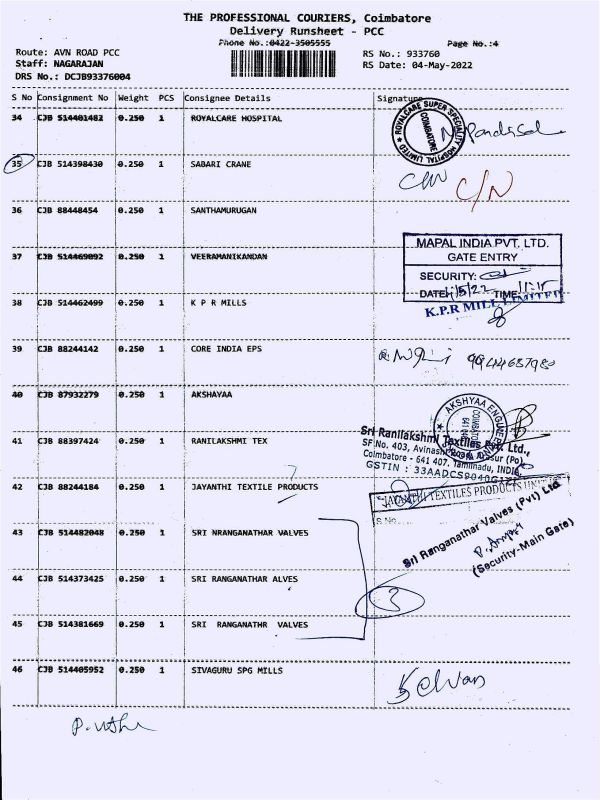 THE PROFESSIONAL COURIERS, Coimbatore
Delivery Runsheet - PCC
Phone No.:0422-3505555 Page No.:4
Route: AVN ROAD PCC RS No.: 933760
Staff: NAGARAJAN RS Date: 04-May-2022
DRS No.: DCJB93376004
S No Consignment No Weight PCS Consignee Details Signature
34 CJB 514401482 0.250 1 ROYALCARE HOSPITAL
ROYALCARE SUPER SPECIALITY HOSPITAL LIMITED COIMBATORE
35 CJB 514398430 0.250 1 SABARI CRANE
C/N
36 CJB 88448454 0.250 1 SANTHAMURUGAN
MAPAL INDIA PVT. LTD.
GATE ENTRY
37 CJB 514469892 0.250 1 VEERAMANIKANDAN
SECURITY:
DATE: 4/5/22 TIME: 11:15
38 CJB 514462499 0.250 1 K P R MILLS
K.P.R MILL LIMITED
39 CJB 88244142 0.250 1 CORE INDIA EPS
40 CJB 87932279 0.250 1 AKSHAYAA
41 CJB 88397424 0.250 1 RANILAKSHMI TEX
Sri Ranilakshmi Textiles Pvt. Ltd.,
SF.No. 403, Avinashi Road, Arasur (Po)
Coimbatore - 641 407. Tamilnadu, INDIA.
GSTIN : 33AADCS9040G1Z
42 CJB 88244184 0.250 1 JAYANTHI TEXTILE PRODUCTS
JAYANTHI TEXTILES PRODUCTS UNIT
S.No.
43 CJB 514482048 0.250 1 SRI NRANGANATHAR VALVES
Sri Ranganathar Valves (Pvt) Ltd
(Security-Main Gate)
44 CJB 514373425 0.250 1 SRI RANGANATHAR ALVES
3
45 CJB 514381669 0.250 1 SRI RANGANATHR VALVES
46 CJB 514405952 0.250 1 SIVAGURU SPG MILLS